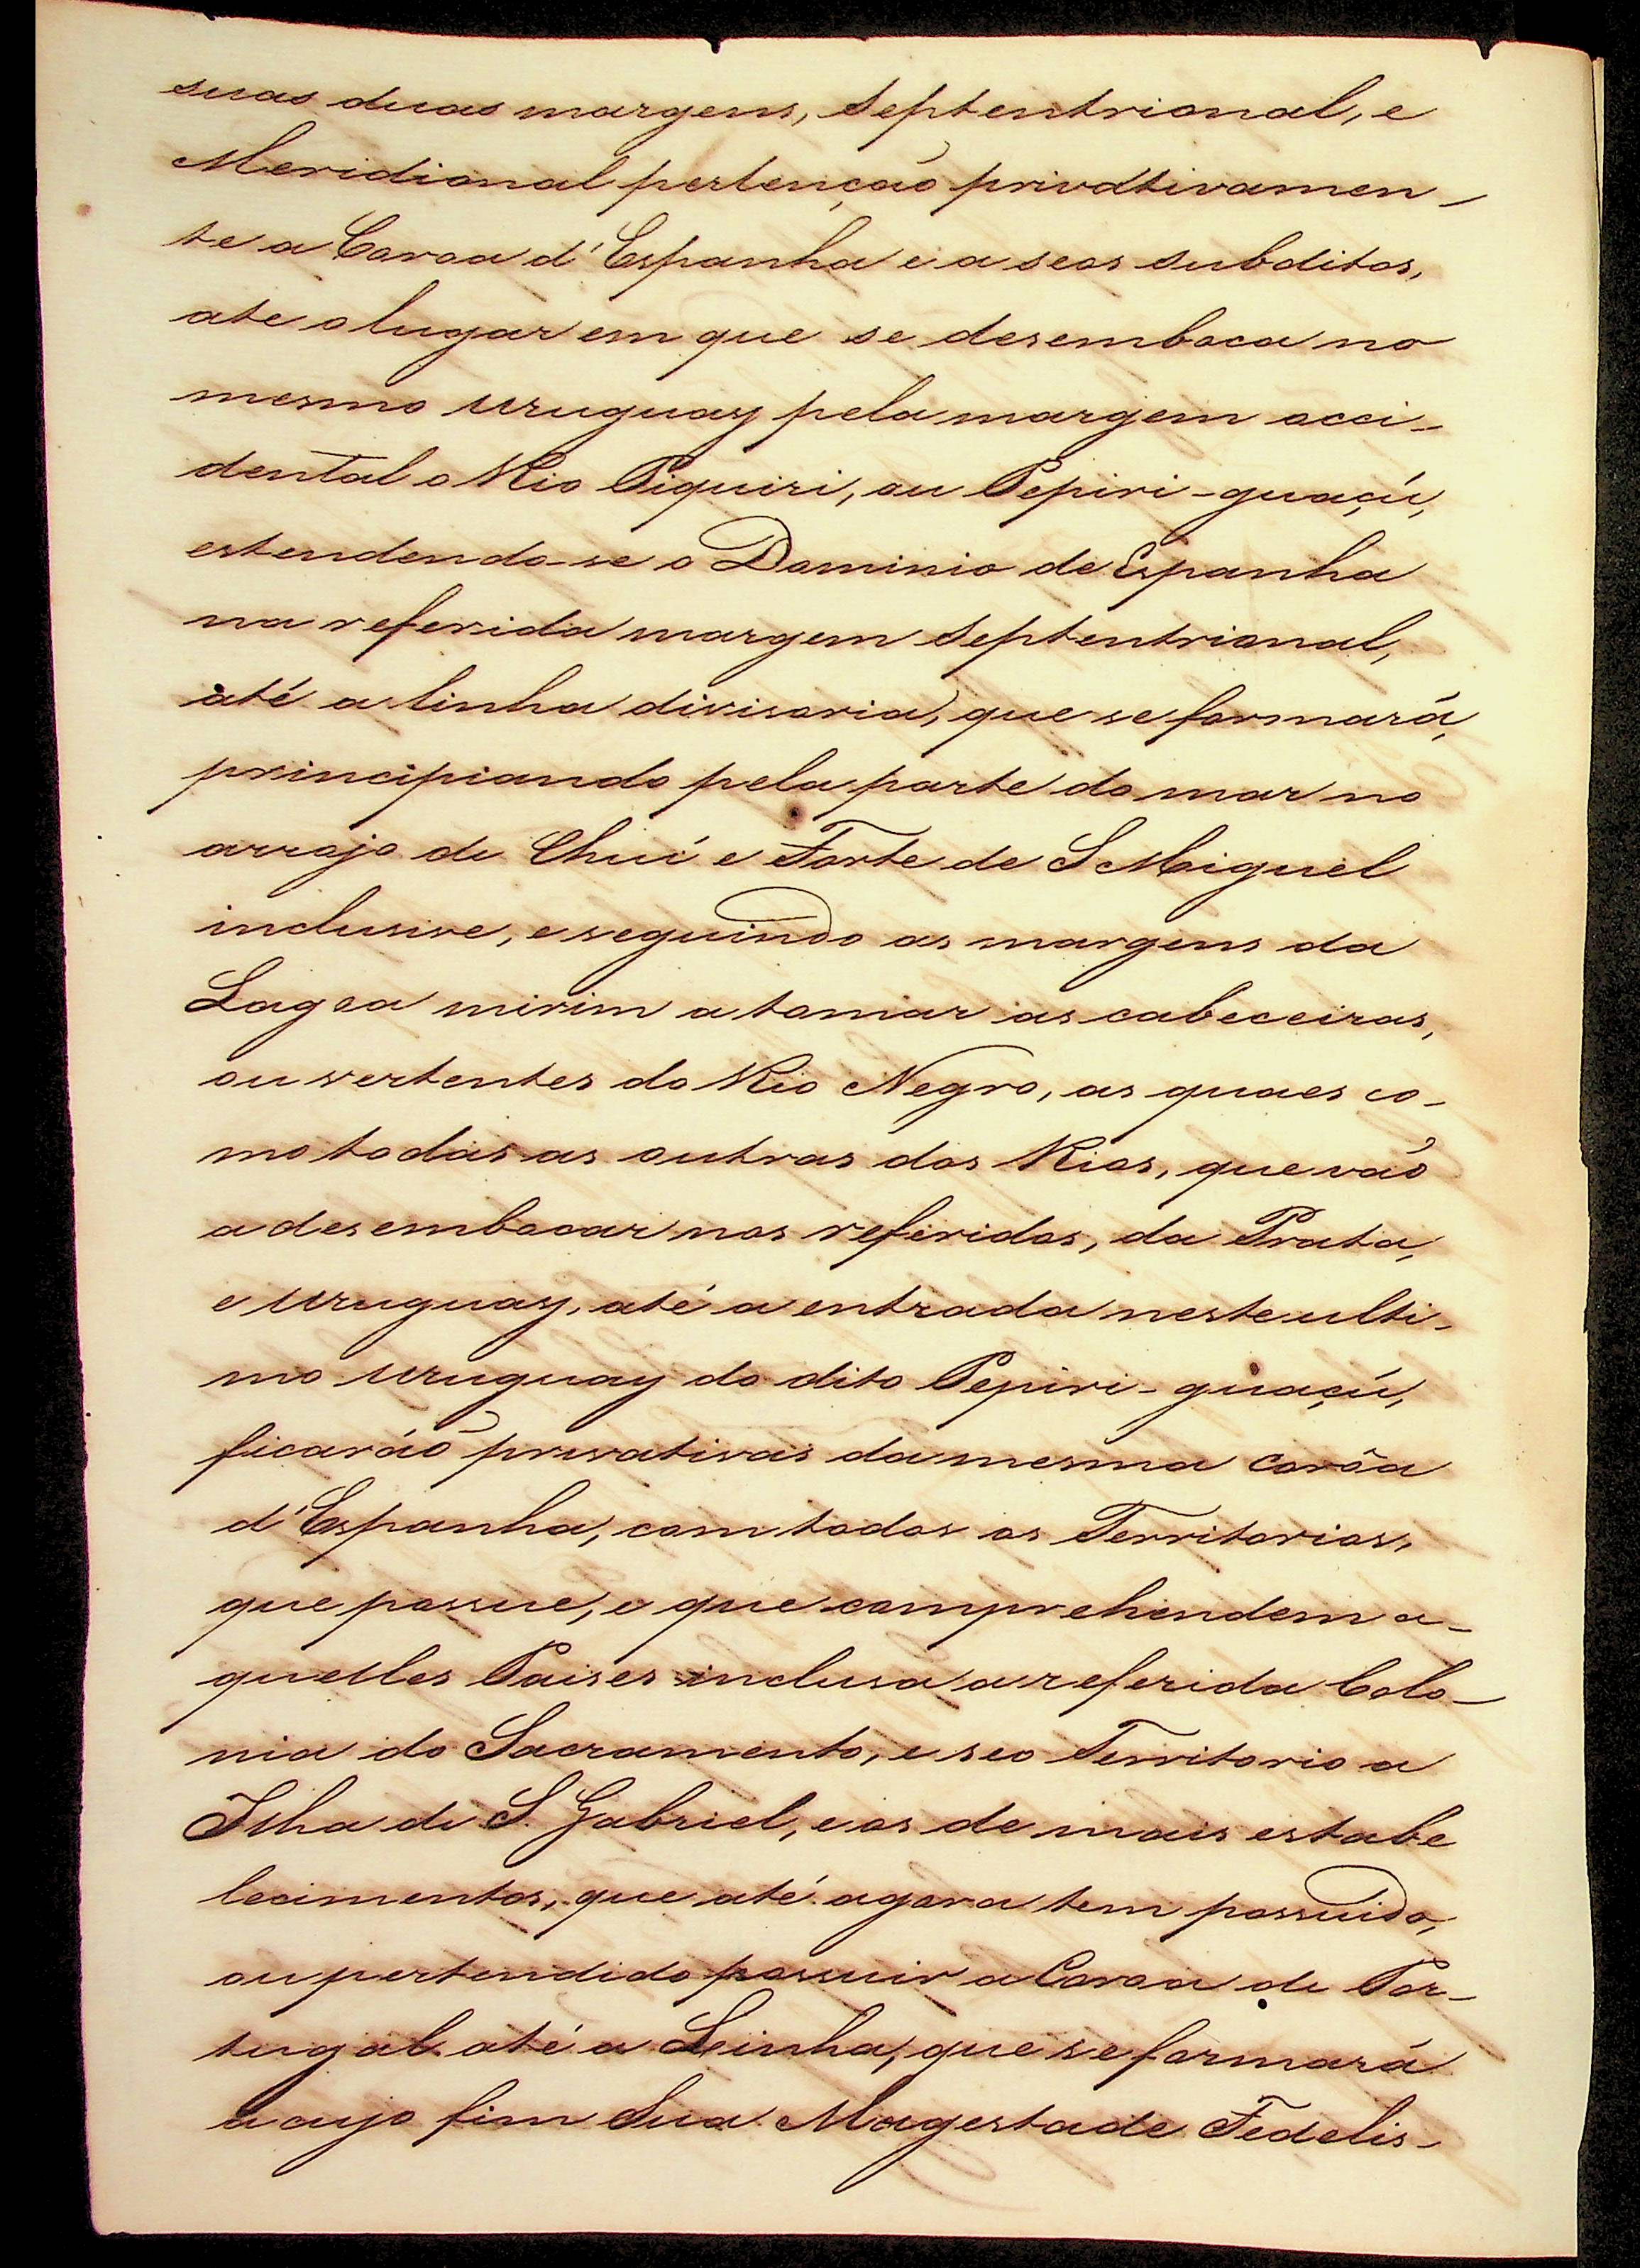 suas duas margens, Septentrional, e
Meridional pertenção privativamen-
te a Coroa d'Espanha e a seos subditos,
ate o lugar em que se desemboca no
mesmo Uruguay pela margem occi-
dental o Rio Piquiri, ou Pepiri-guaçú,
estendendo-se o Dominio de Espanha
na referida margem Septentrional,
até a linha divisoria, que se formará,
principiando pela parte do mar no
arrojo de Chuí e Forte de S Miguel
inclusive, e seguindo as margens da
Lagoa mirim a tomar as cabeceiras,
ou vertentes do Rio Negro, as quaes co-
mo todas as outras dos Rios, que vão
a desembocar nos referidos, da Prata,
e Uruguay, até a entrada neste ulti-
mo Uruguay do dito Pepiri-guaçú,
ficarão privativas da mesma corôa
d'Espanha, com todos os Territorios,
que possue, e que comprehendem a-
quelles Paises inclusa a referida Colo-
nia do Sacramento, e seo Territorio a
Ilha de S. Gabriel, e os de mais estabe
lecimentos, que até agora tem possuido,
ou pertendido possuir a Coroa de Por-
tugal até a Linha, que se formará
a cujo fim Sua Magestade Fedelis-